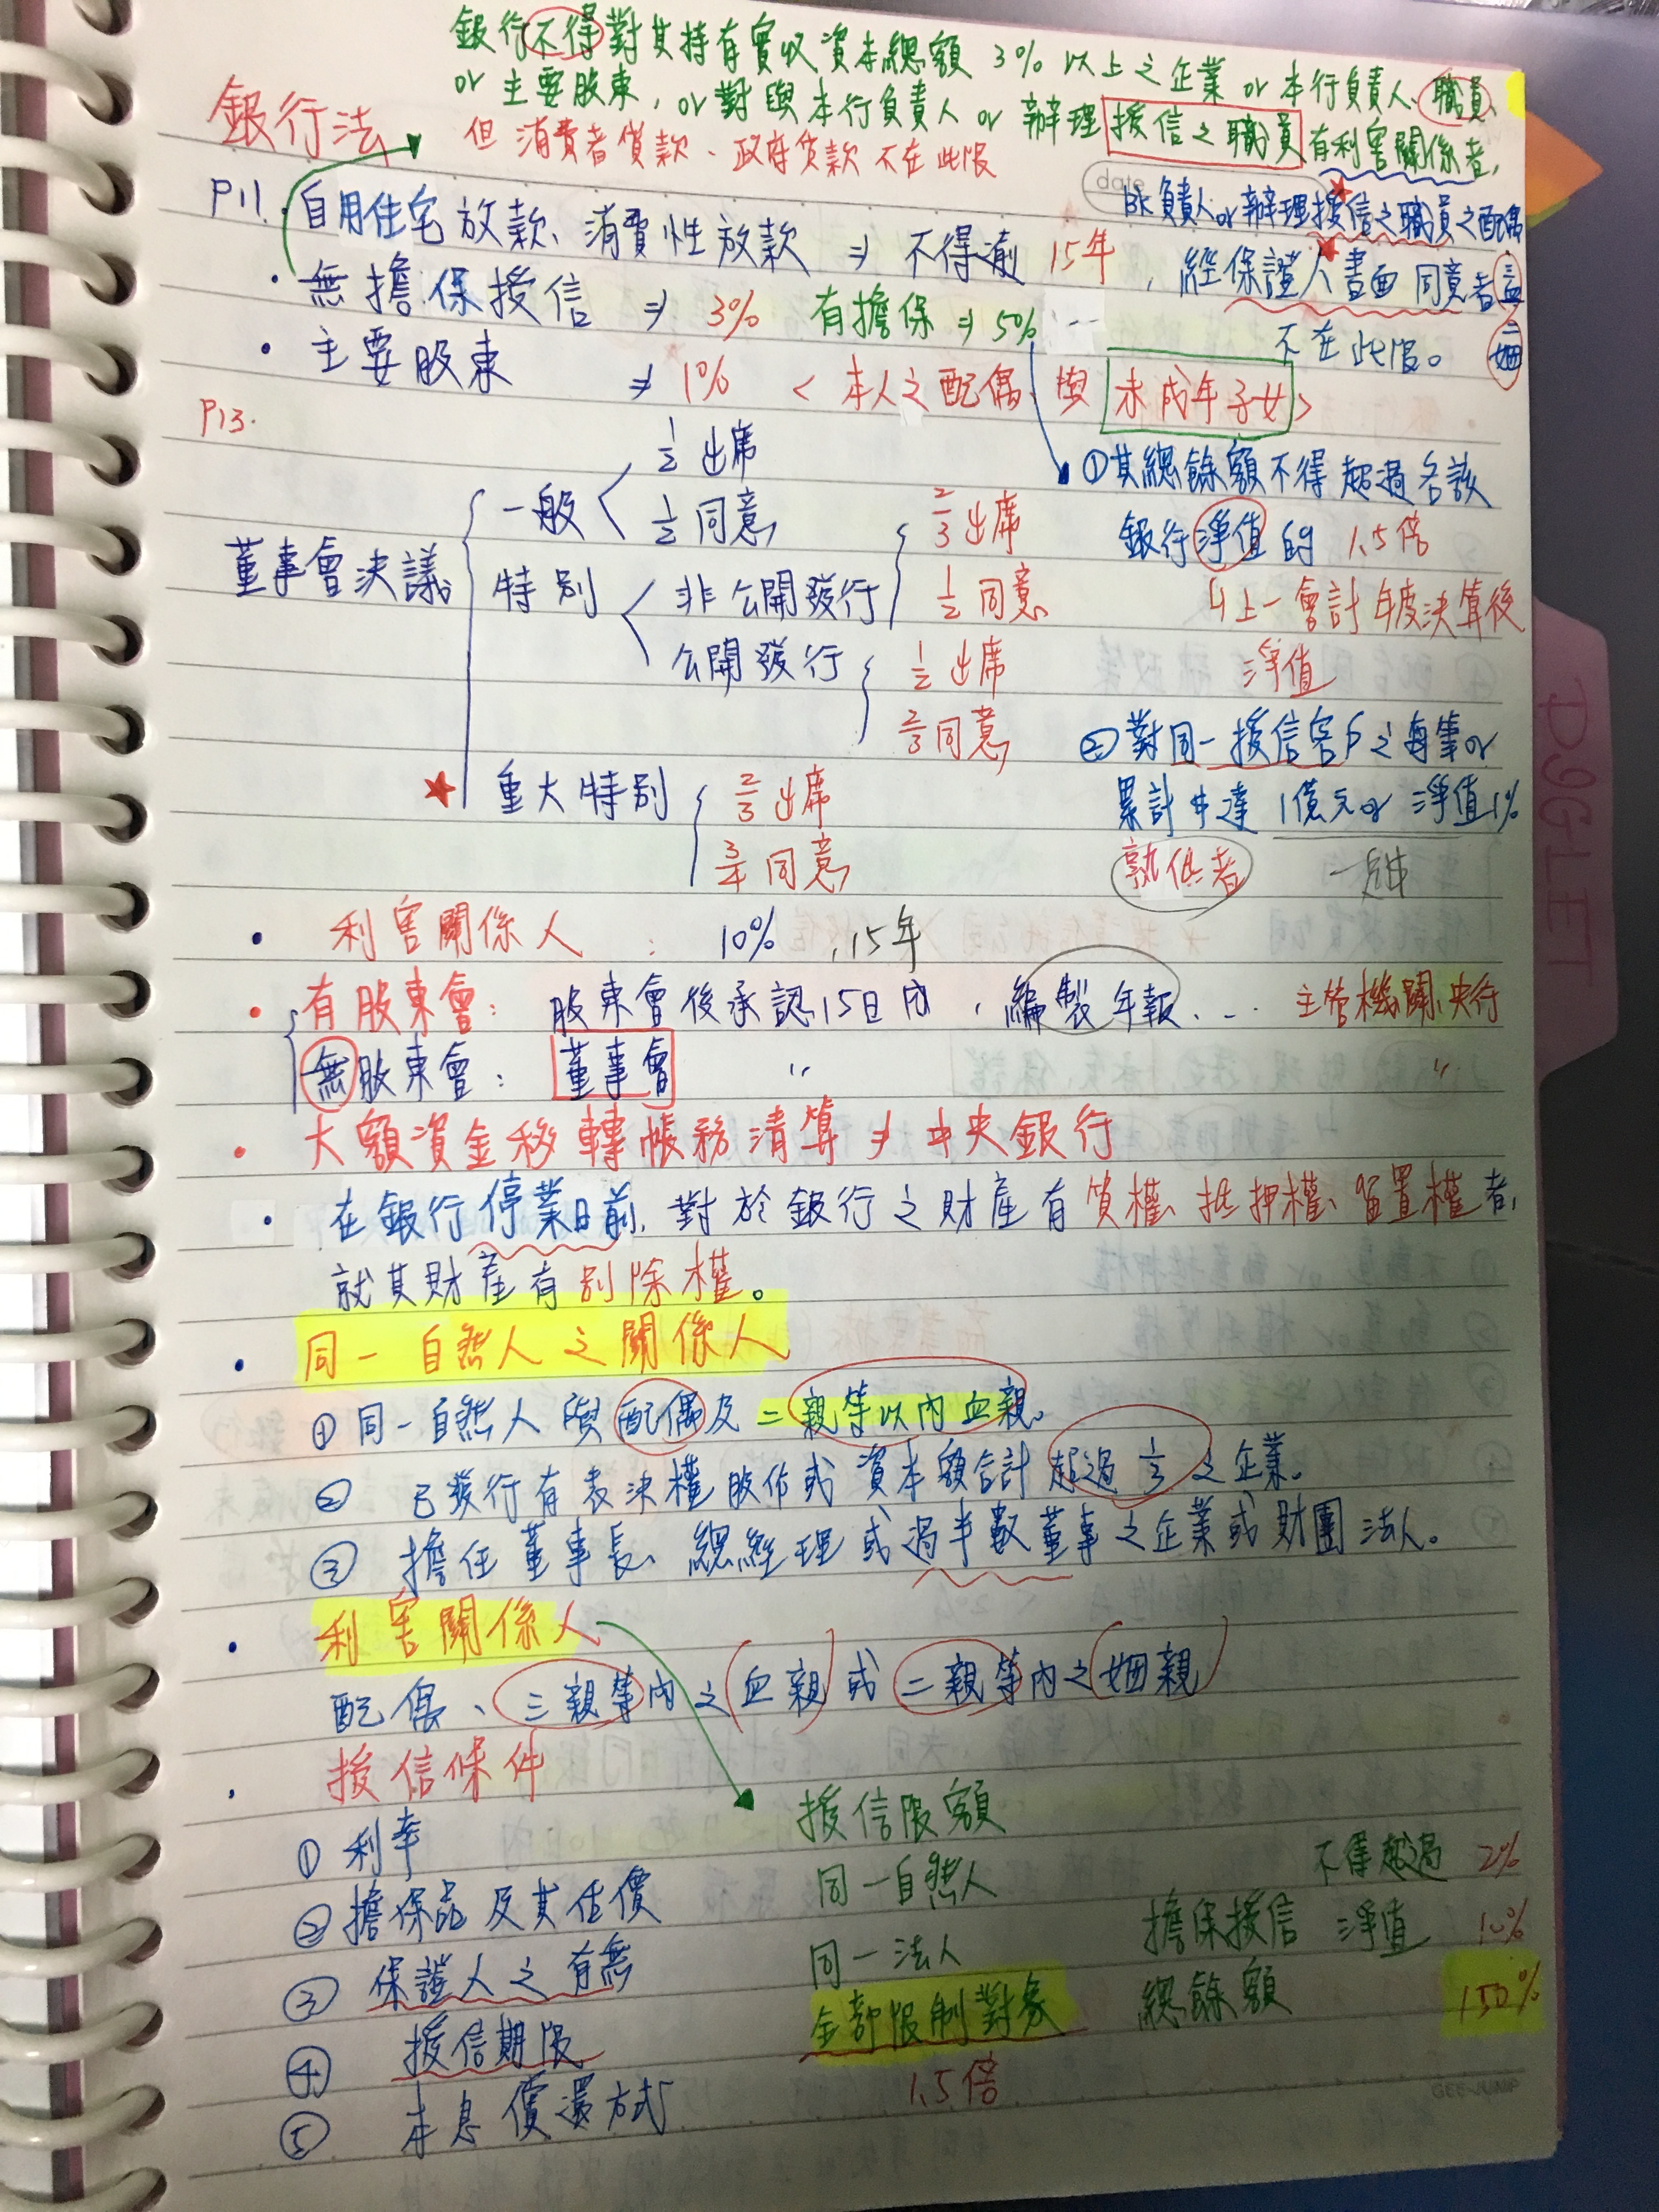 銀行不得對其持有實收資本總額 3% 以上之企業 or 本行負責人、職員、
or 主要股東, or 對與本行負責人 or 辦理授信之職員有利害關係者,
銀行法
但消費者貸款、政府貸款不在此限
date
P11. 自用住宅放款、消費性放款 ⇒ 不得逾 15年
bk 負責人 or 辦理授信之職員之配偶
, 經保證人書面同意者
三血
二姻
不在此限。
・無擔保授信 ⇒ 3% 有擔保 ⇒ 5%
・主要股東 ⇒ 1% < 本人之配偶與未成年子女>
P13.
董事會決議
一般
1/2 出席
1/2 同意
特別
非公開發行
2/3 出席
1/2 同意
公開發行
1/2 出席
2/3 同意
★ 重大特別
2/3 出席
3/4 同意
①其總餘額不得超過各該
銀行淨值的 1.5倍
↳上一會計年度決算後
淨值
②對同一授信客戶之每筆 or
累計達 1億元 or 淨值1%
孰低者
・利害關係人 : 10% , 15年
・有股東會: 股東會後承認15日內, 編製年報... 主管機關、央行
無股東會: 董事會 〃 〃
・大額資金移轉帳務清算 ⇒ 中央銀行
・在銀行停業日前, 對於銀行之財產有質權、抵押權、留置權者,
就其財產有別除權。
・同一自然人之關係人
① 同一自然人與配偶及二親等以內血親。
② 已發行有表決權股份或資本額合計超過 1/3 之企業。
③ 擔任董事長、總經理或過半數董事之企業或財團法人。
・利害關係人
配偶、三親等內之血親或二親等內之姻親
・授信條件
① 利率
② 擔保品及其估價
③ 保證人之有無
④ 授信期限
⑤ 本息償還方式
授信限額
同一自然人 不得超過 2%
同一法人 擔保授信 淨值 10%
全部限制對象 總餘額 150%
1.5倍
GEE-JUMP
D9GLET